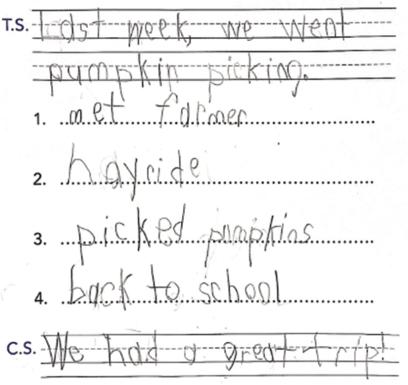 T.S. Last week, we went
pumpkin picking.
1. met farmer
2. hayride
3. picked pumpkins
4. back to school
C.S. We had a great trip!